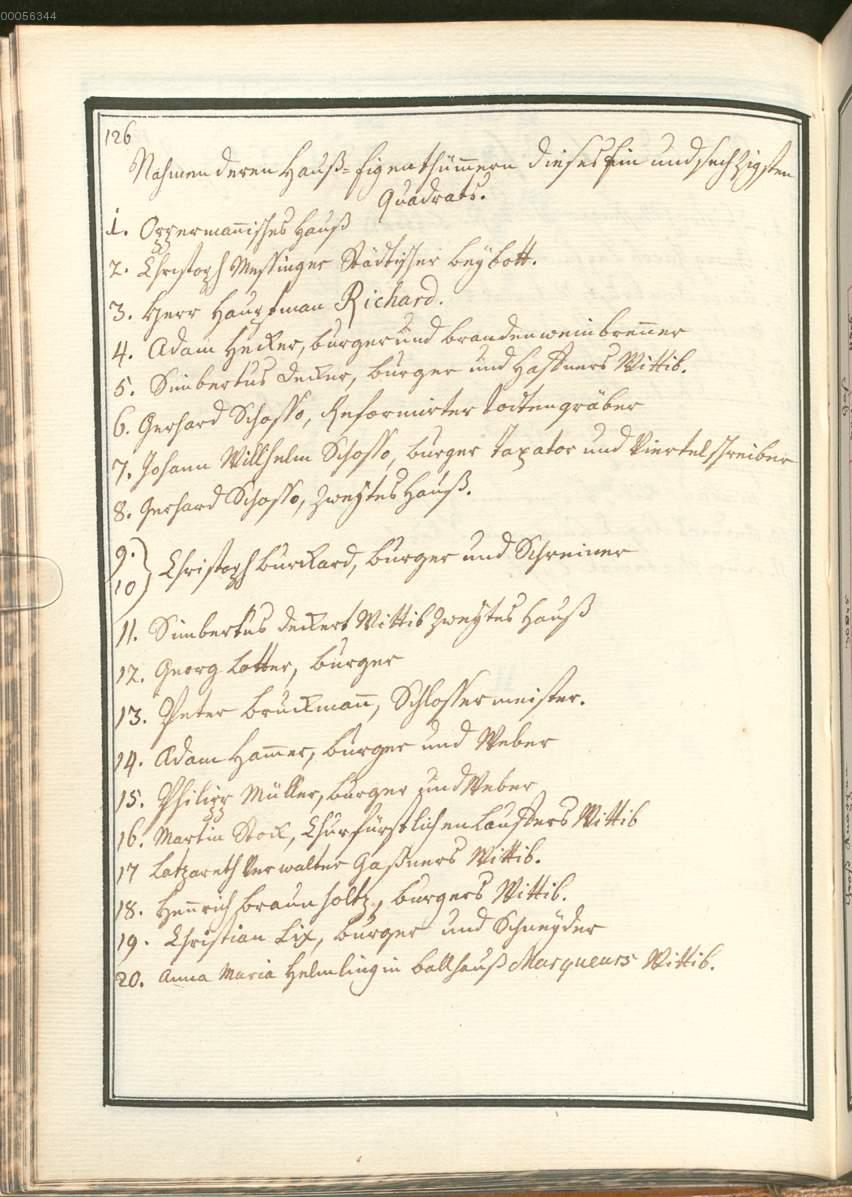 00056344
126
Nahmen deren Hauß-Eigenthümmern dieses Ein und sechzigsten
Quadrats.
1. Oppermañisches Hauß
2. Christoph Messinger Städtischer beÿbott.
3. Herr Hauptman Richard.
4. Adam Hecker, burger und brandenweinbreñer
5. Simbertus Decker, burger und Haffners Wittib.
6. Gerhard Schosso, Reformirter Todtengräber
7. Johann Willhelm Schosso, burger Taxator und Viertelschreiber
8. Gerhard Schosso, Zweÿtes Hauß.
9.
10) Christoph burckard, burger und Schreiner
11. Simbertus Deckert Wittib Zweÿtes Hauß
12. Georg Lotter, burger
13. Peter bruckmañ, Schlosser meister.
14. Adam Ham̃er, burger und Weber
15. Philipp Müller, burger und Weber
16. Martin Stock, Churfürstlichen Lauffers Wittib
17 Latzareth Verwalter Gaßners Wittib.
18. Heñrich braunholtz, burgers Wittib.
19. Christian Lix, burger und Schneÿder
20. Anna Maria Helmlingin ballhauß Marqueurs Wittib.